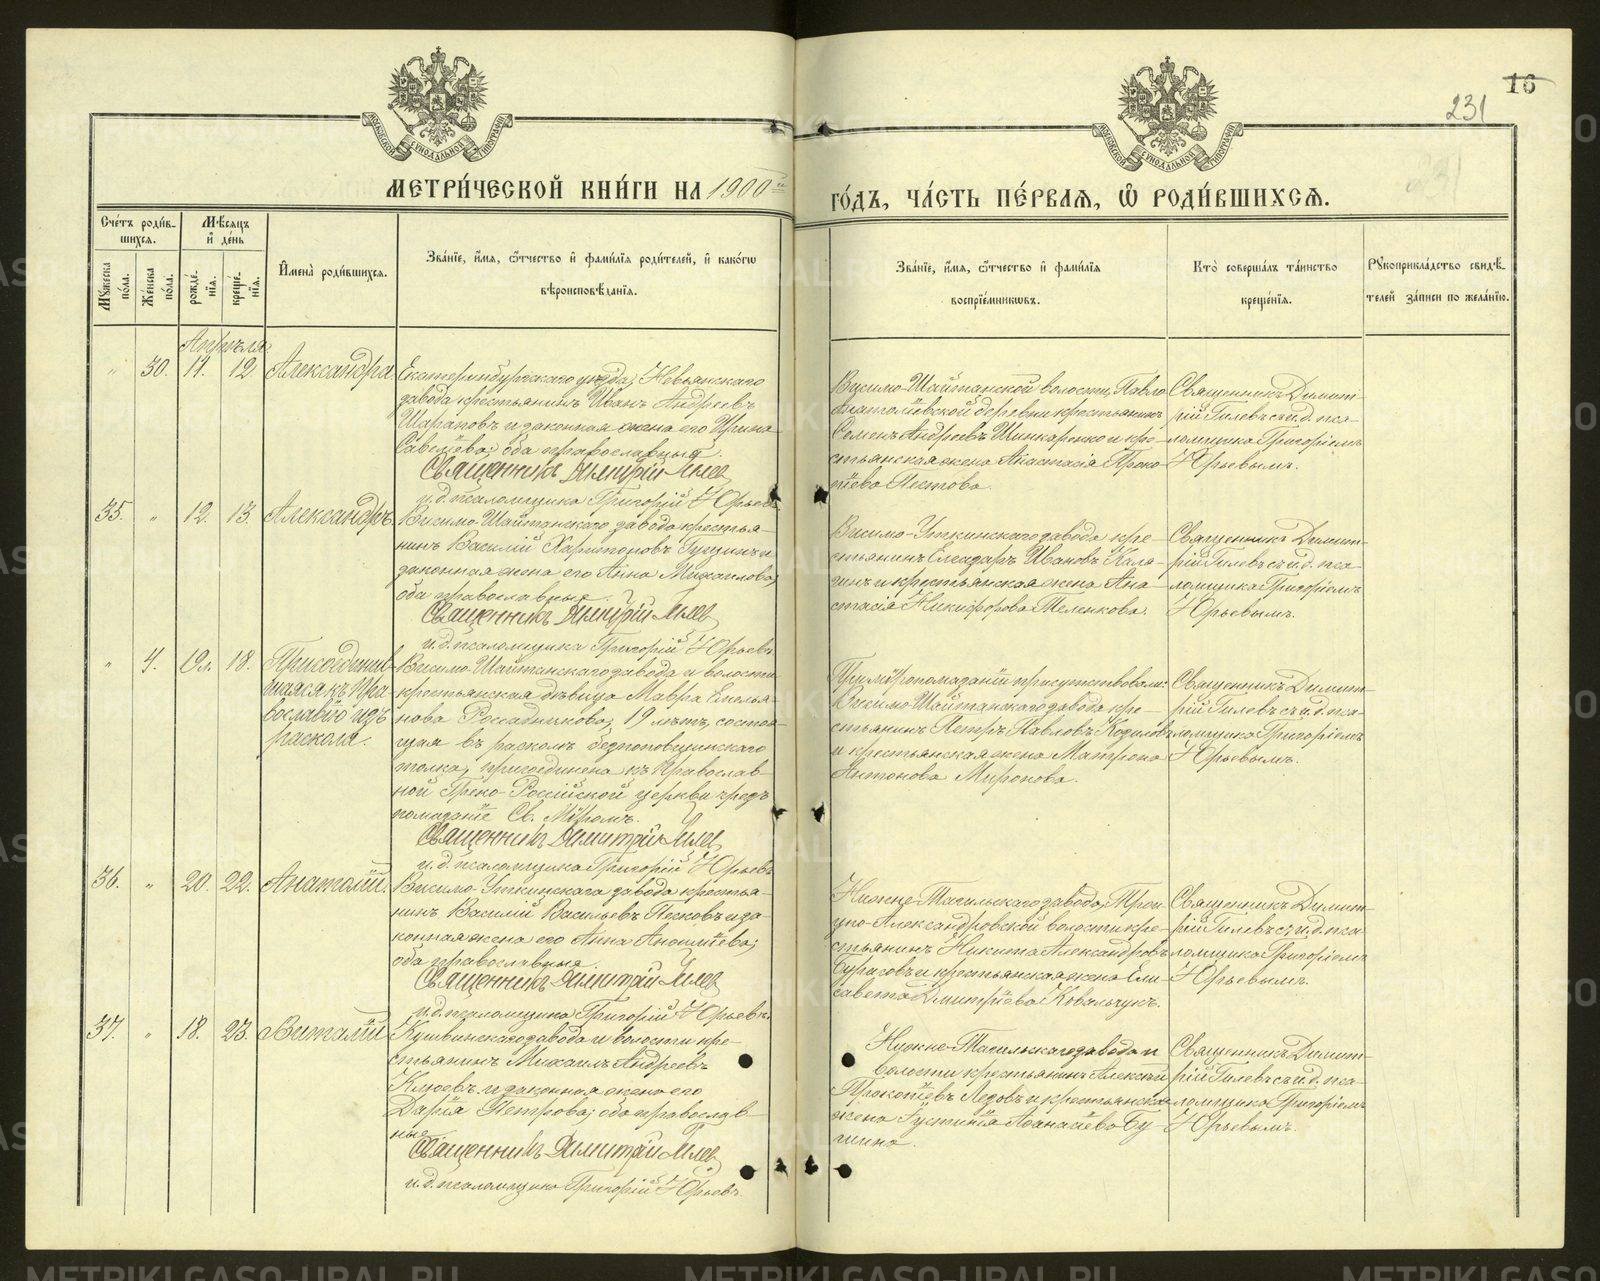 16
231
МОСКОВСКОЙ СУНОДАЛЬНОЙ ТИПОГРАФІИ
МОСКОВСКОЙ СУНОДАЛЬНОЙ ТИПОГРАФІИ
МЕТРИ́ЧЕСКОЙ КНИ́ГИ НА 1900 й
ГО́ДЪ, ЧА́СТЬ ПЕ́РВАѦ, Ѡ҆ РОДИ́ВШИХСѦ.
Счетъ роди́вшихсѧ.
Мꙋжеска по́ла.
Же́нска по́ла.
Мѣ́сѧцъ и҆ де́нь
рожде́нїѧ.
креще́нїѧ.
И҆мена̀ роди́вшихсѧ.
Зва́нїе, и҆́мѧ, ѻ҆́тчество и҆ фами́лїѧ роди́телей, и҆ како́гѡ
вѣроисповѣ́данїѧ.
Зва́нїе, и҆́мѧ, ѻ҆́тчество и҆ фами́лїѧ
воспрїе́мникѡвъ.
Кто̀ соверша́лъ та́инство
креще́нїѧ.
Рꙋкоприкла́дство свидѣ́телей за́писи по жела́нїю.
Апрѣля
" 30. 11. 12 Александра
Екатеринбургскаго уѣзда, Невьянскаго
завода крестьянинъ Иванъ Андреевъ
Шараповъ и законная жена его Ирина
Савельева; оба православныя.
Священникъ Димитрій Гилев
и. д. псаломщика Григорій Юрьевъ
Висимо-Шайтанской волости, Павло-
Анатольевской деревни крестьянинъ
Семенъ Андреевъ Шинкаренко и кре-
стьянская жена Анастасія Проко-
піева Пестова.
Священникъ Димит-
рій Гилевъ съ и. д. пса-
ломщика Григоріемъ
Юрьевымъ.
35. " 12. 13. Александръ
Висимо-Шайтанскаго завода крестья-
нинъ Василій Харитоновъ Гущинъ и
законная жена его Анна Михаилова;
оба православныя.
Священникъ Димитрій Гилев
и. д. псаломщика Григорій Юрьевъ
Висимо-Уткинскаго завода кре-
стьянинъ Елеазаръ Ивановъ Кала-
гинъ и крестьянская жена Ана-
стасія Никифорова Теленкова.
Священникъ Димит-
рій Гилевъ съ и. д. пса-
ломщика Григоріемъ
Юрьевымъ.
" 4. 18.
Присоединив-
шаяся къ Пра-
вославію изъ
раскола.
Висимо-Шайтанскаго завода и волости
крестьянская дѣвица Мавра Емелья-
нова Россадникова, 19 лѣтъ, состоя-
щая въ расколѣ безпоповщинскаго
толка, присоединена къ Православ-
ной Греко-Россійской церкви чрезъ
помазаніе Св. Мѵромъ.
Священникъ Димитрій Гилев
и. д. псаломщика Григорій Юрьевъ
При мѵропомазаніи присутствовали:
Висимо-Шайтанскаго завода кре-
стьянинъ Петръ Павловъ Козиловъ
и крестьянская жена Матрона
Антонова Миронова.
Священникъ Димит-
рій Гилевъ съ и. д. пса-
ломщика Григоріемъ
Юрьевымъ.
36. " 20. 22. Анатолій.
Висимо-Уткинскаго завода крестья-
нинъ Василій Васильевъ Песковъ и за-
конная жена его Анна
оба православныя.
Священникъ Димитрій Гилев
и. д. псаломщика Григорій Юрьевъ.
Нижне-Тагильскаго завода, Трои-
цко-Александровской волости кре-
стьянинъ Никита Александровъ
Бурасовъ и крестьянская жена Ели-
савета Дмитріева Ковальчукъ.
Священникъ Димит-
рій Гилевъ съ и. д. пса-
ломщика Григоріемъ
Юрьевымъ.
37. " 18. 23. Виталій
Кушвинскаго завода и волости кре-
стьянинъ Михаилъ Андреевъ
Клюевъ и законная жена его
Дарія Петрова; оба православ-
ные
Священникъ Димитрій Гилев
и. д. псаломщика Григорій Юрьевъ.
Нижне-Тагильскаго завода и
волости крестьянинъ Алексѣй
Прокопіевъ Ледовъ и крестьянская
жена Іустинія Аѳанасіева Бу-
шина.
Священникъ Димит-
рій Гилевъ съ и. д. пса-
ломщика Григоріемъ
Юрьевымъ.
METRIKI.GASO-URAL.RU